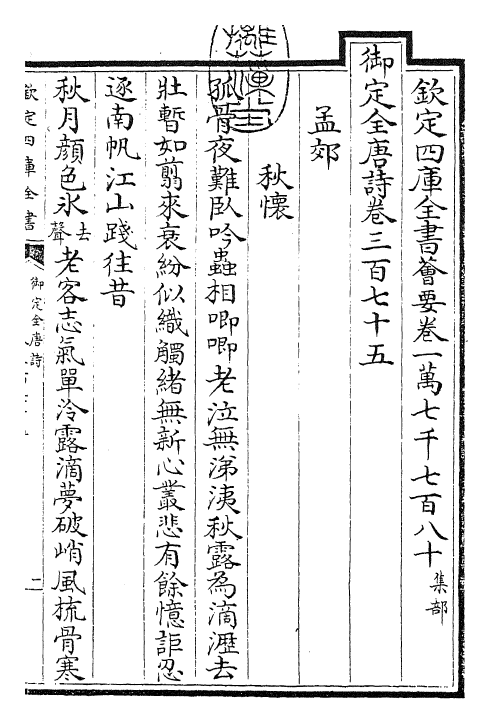 欽定四庫全書薈要卷一萬七千七百八十 集部
御定全唐詩卷三百七十五
孟郊
秋懷
孤骨夜難臥吟蟲相唧唧老泣無涕洟秋露為滴瀝去
壯暫如翦來衰紛似織觸緒無新心叢悲有餘憶詎忍
逐南帆江山踐往昔
秋月顏色氷去聲老客志氣單冷露滴夢破峭風梳骨寒
欽定四庫全書
御定全唐詩
二